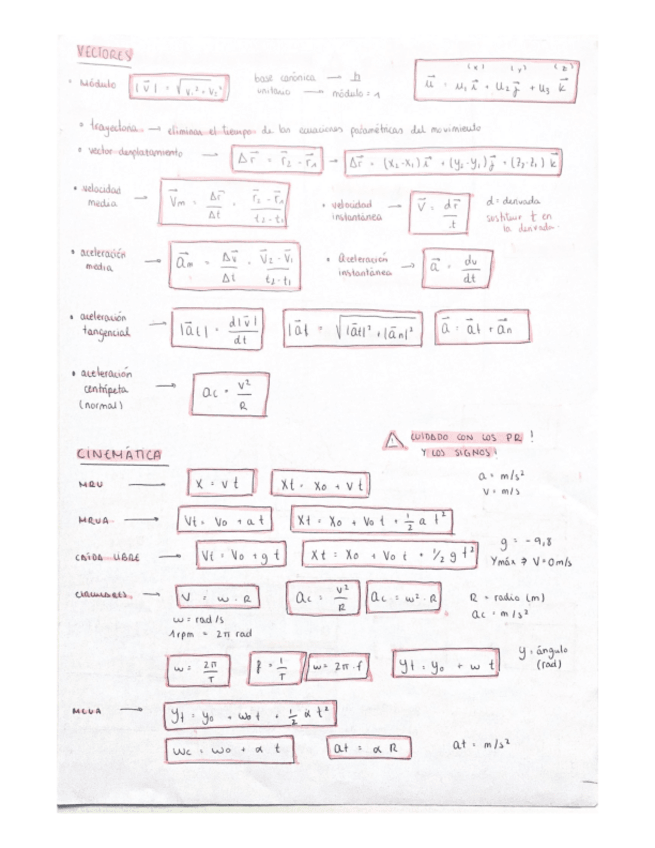 VECTORES
(x) (y) (z)
• Módulo |v⃗| = √v₁² + v₂² base canónica → b u⃗ = u₁ i⃗ + u₂ j⃗ + u₃ k⃗
unitario → módulo = 1
• trayectoria → eliminas el tiempo de las ecuaciones paramétricas del movimiento
• vector desplazamiento → Δr⃗ = r⃗₂ - r⃗₁ → Δr⃗ = (x₂-x₁) i⃗ + (y₂-y₁) j⃗ + (z₂-z₁) k⃗
• velocidad media → V⃗m = Δr⃗/Δt = r⃗₂ - r⃗₁/t₂ - t₁ • velocidad instantánea → V⃗ = dr⃗/t d = derivada
sustituir t en
la derivada.
• aceleración media → a⃗m = Δv⃗/Δt = V⃗₂ - V⃗₁/t₂ - t₁ • Aceleración instantánea → a⃗ = dv/dt
• aceleración tangencial → |a⃗t| = d|v⃗|/dt |a⃗| = √|a⃗t|² + |a⃗n|² a⃗ = a⃗t + a⃗n
• aceleración centrípeta (normal) → ac = v²/R
⚠ CUIDADO CON LOS PR !
Y LOS SIGNOS!
CINEMÁTICA
MRU → x = v t Xt = Xo + v t a = m/s²
v = m/s
MRUA → Vt = Vo + a t Xt = Xo + Vo t + 1/2 a t²
CAÍDA LIBRE → Vt = Vo + g t Xt = Xo + Vo t + 1/2 g t² g = -9,8
Ymáx → V = 0 m/s
CIRCULARES → V = w · R ac = v²/R ac = w² · R R = radio (m)
ac = m/s²
w = rad/s
1 rpm = 2π rad
w = 2π/T f = 1/T w = 2π · f yt = yo + w t y = ángulo
(rad)
MCUA → yt = yo + wo t + 1/2 α t²
wc = wo + α t at = α R at = m/s²